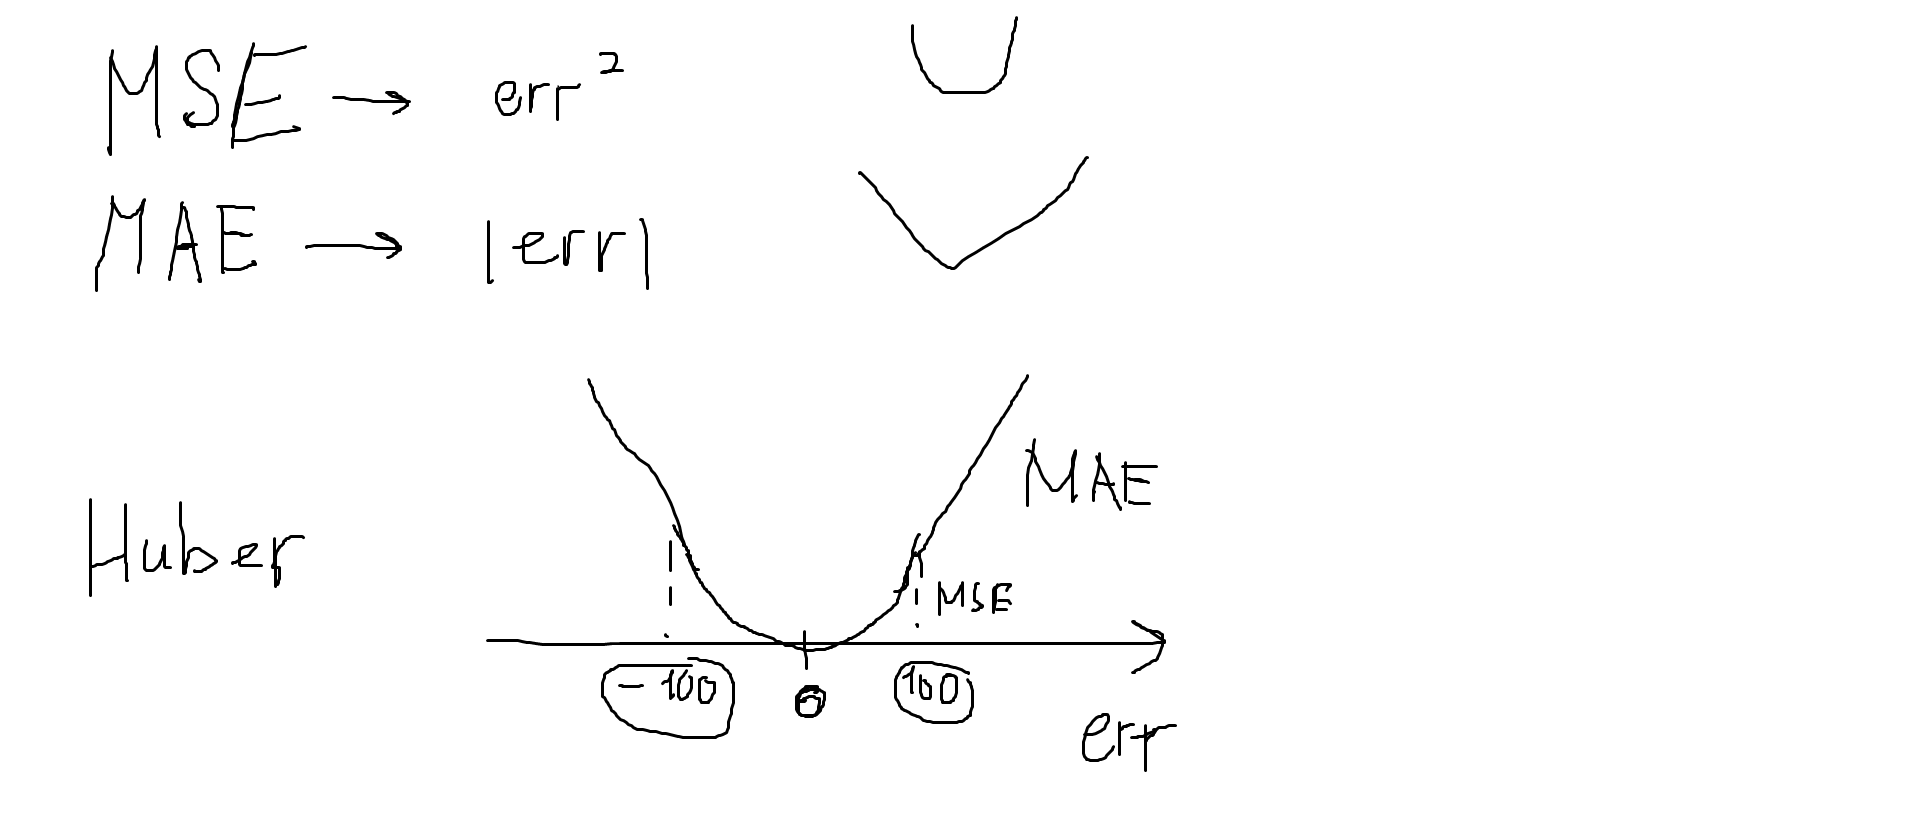 MSE → err²
MAE → |err|
Huber
MAE
MSE
- 100 0 100
err